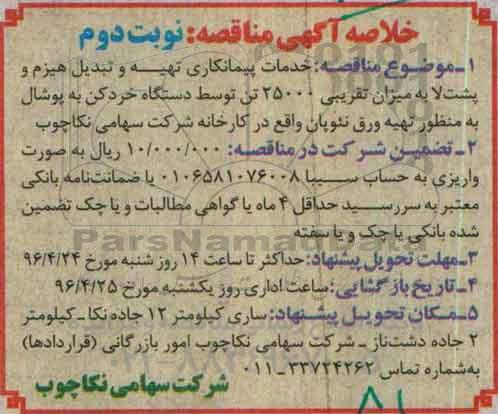 خلاصه آگهی مناقصه: نوبت دوم
۱ـ موضوع مناقصه: خدمات پیمانکاری تهیه و تبدیل هیزم و
پشت‌لا به میزان تقریبی ۲۵۰۰۰ تن توسط دستگاه خردکن به پوشال
به منظور تهیه ورق نئوپان واقع در کارخانه شرکت سهامی نکاچوب
۲ـ تضمین شرکت در مناقصه: ۱۰/۰۰۰/۰۰۰ ریال به صورت
واریزی به حساب سیبا ۰۱۰۶۵۸۱۰۷۶۰۰۸ یا ضمانت‌نامه بانکی
معتبر به سررسید حداقل ۴ ماه یا گواهی مطالبات و یا چک تضمین
شده بانکی یا چک و یا سفته
ParsNamadData
۳ـ مهلت تحویل پیشنهاد: حداکثر تا ساعت ۱۴ روز شنبه مورخ ۹۶/۴/۲۴
۴ـ تاریخ بازگشایی: ساعت اداری روز یکشنبه مورخ ۹۶/۴/۲۵
۵ـ مکان تحویل پیشنهاد: ساری کیلومتر ۱۲ جاده نکا ـ کیلومتر
۲ جاده دشت‌ناز ـ شرکت سهامی نکاچوب امور بازرگانی (قراردادها)
به‌شماره تماس ۳۳۷۲۴۲۶۲ ـ ۰۱۱
شرکت سهامی نکاچوب